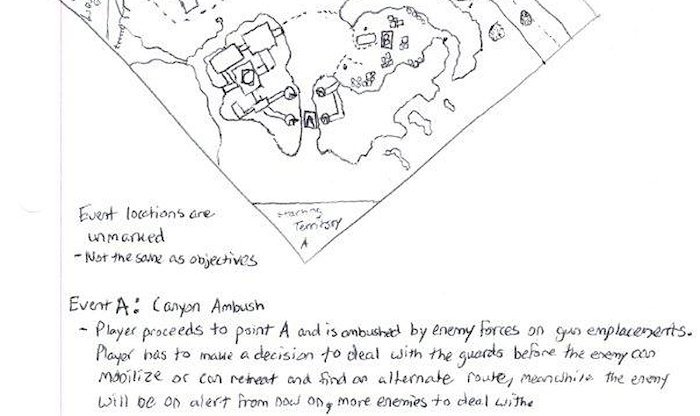 starting
Territory
A
A
B
Event locations are
unmarked
- Not the same as objectives
Event A: Canyon Ambush
- Player proceeds to point A and is ambushed by enemy forces on gun emplacements.
Player has to make a decision to deal with the guards before the enemy can
mobilize or can retreat and find an alternate route, meanwhile the enemy
will be on alert from now on, more enemies to deal withe